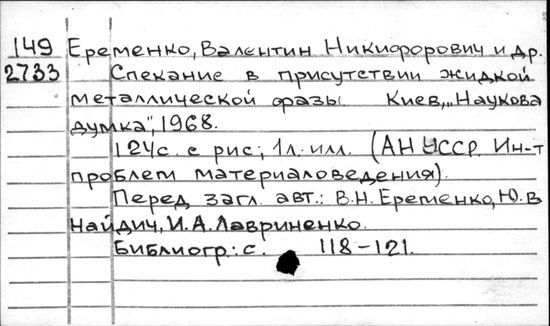 149 Еременко, Валентин Никифорович и др.
2733 Спекание в присутствии жидкой
металлической фазы. Киев, "Наукова
думка", 1968.
124с. с рис; 1л. илл. (АН УССР. Ин-т
проблем материаловедения).
Перед загл. авт.: В.Н. Еременко, Ю.В.
Найдич, И.А. Лавриненко.
Библиогр.: с. 118-121.